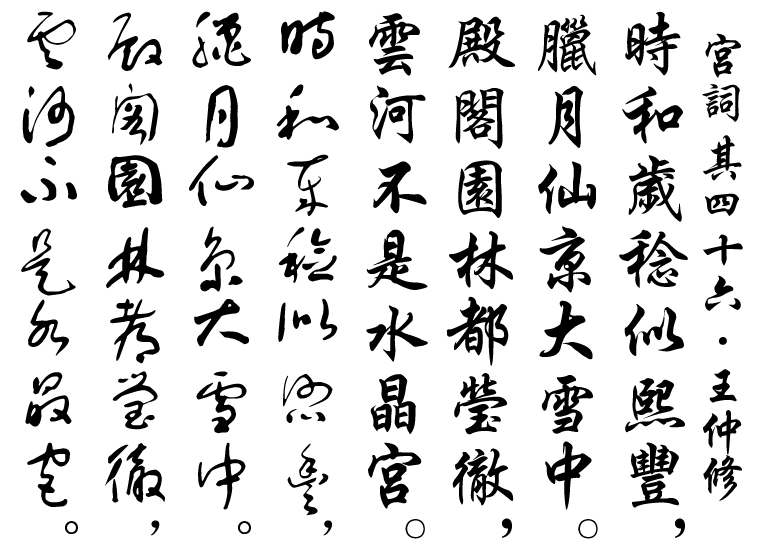 宮詞其四十六·王仲修
時和歲稔似熙豐，
臘月仙京大雪中。
殿閣園林都瑩徹，
雲河不是水晶宮。
時和歲稔似熙豐，
臘月仙京大雪中。
殿閣園林都瑩徹，
雲河不是水晶宮。